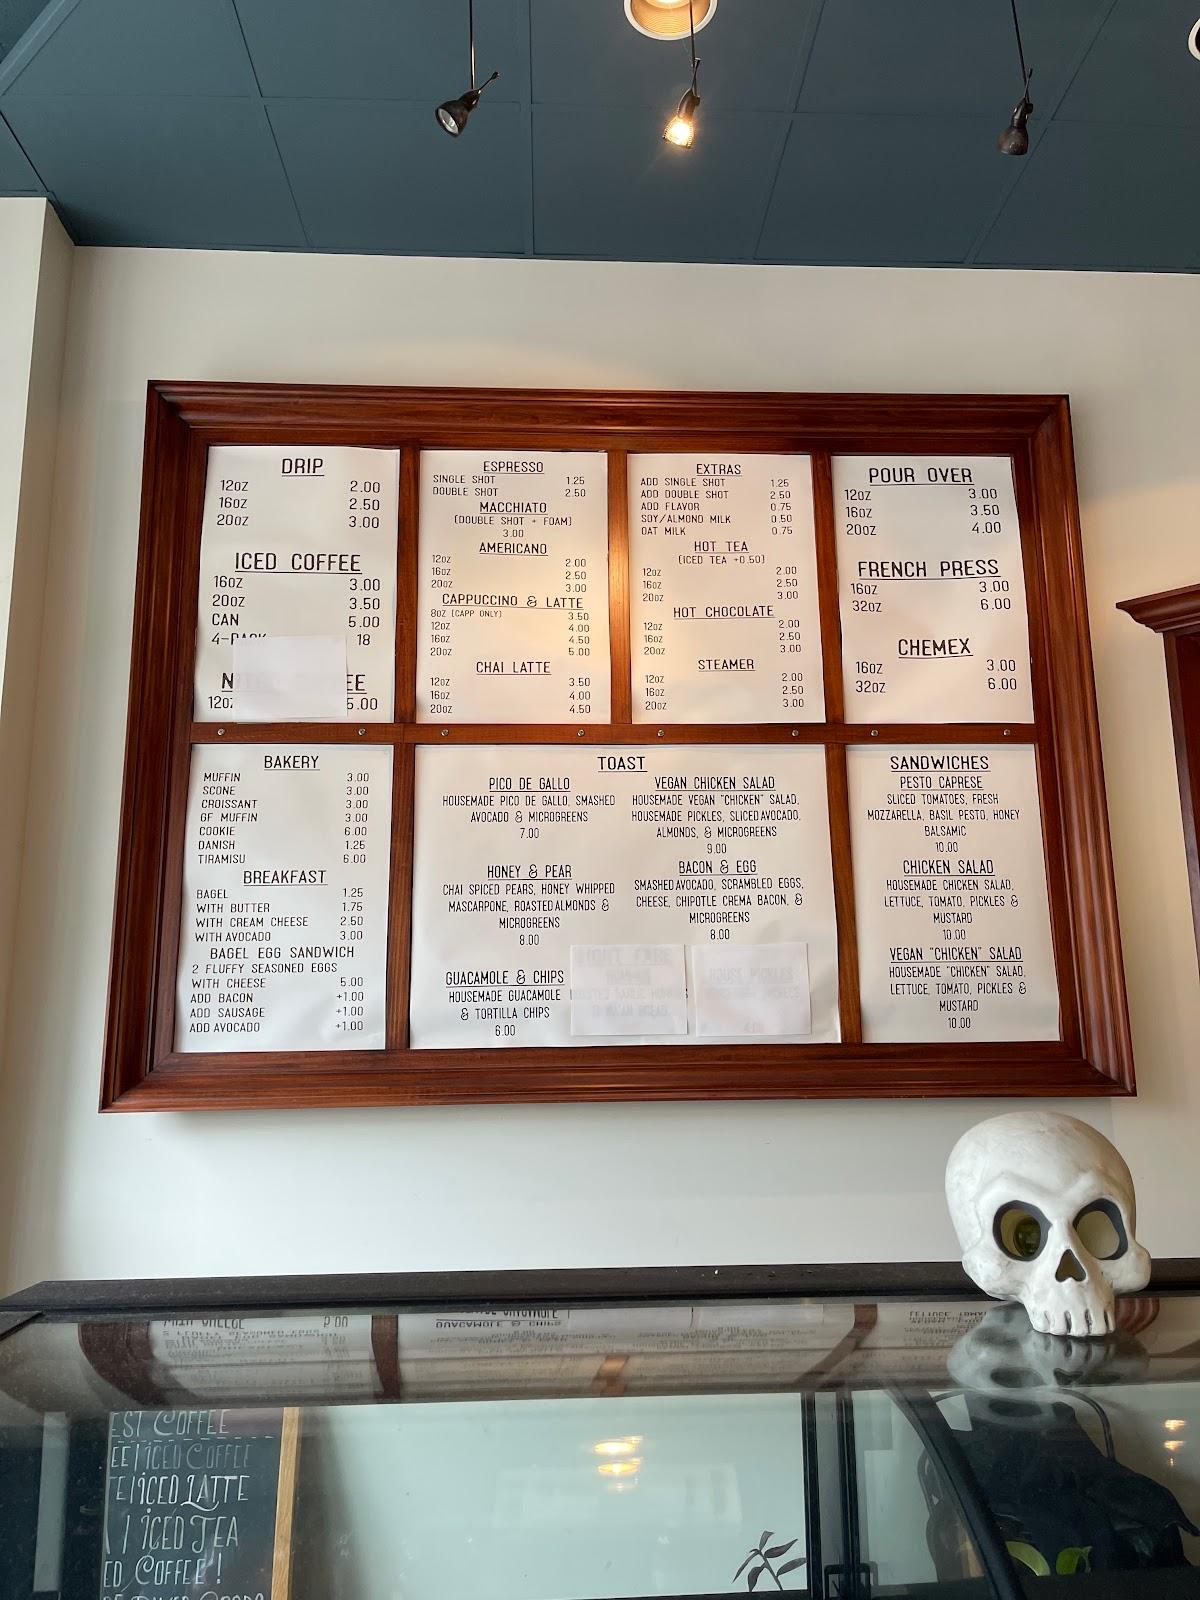 DRIP
12OZ 2.00
16OZ 2.50
20OZ 3.00
ICED COFFEE
16OZ 3.00
20OZ 3.50
CAN 5.00
4-PACK 18
N EE
12OZ 5.00
ESPRESSO
SINGLE SHOT 1.25
DOUBLE SHOT 2.50
MACCHIATO
(DOUBLE SHOT + FOAM)
3.00
AMERICANO
12OZ 2.00
16OZ 2.50
20OZ 3.00
CAPPUCCINO & LATTE
8OZ (CAPP ONLY) 3.50
12OZ 4.00
16OZ 4.50
20OZ 5.00
CHAI LATTE
12OZ 3.50
16OZ 4.00
20OZ 4.50
EXTRAS
ADD SINGLE SHOT 1.25
ADD DOUBLE SHOT 2.50
ADD FLAVOR 0.75
SOY/ALMOND MILK 0.50
OAT MILK 0.75
HOT TEA
(ICED TEA +0.50)
12OZ 2.00
16OZ 2.50
20OZ 3.00
HOT CHOCOLATE
12OZ 2.00
16OZ 2.50
20OZ 3.00
STEAMER
12OZ 2.00
16OZ 2.50
20OZ 3.00
POUR OVER
12OZ 3.00
16OZ 3.50
20OZ 4.00
FRENCH PRESS
16OZ 3.00
32OZ 6.00
CHEMEX
16OZ 3.00
32OZ 6.00
BAKERY
MUFFIN 3.00
SCONE 3.00
CROISSANT 3.00
GF MUFFIN 3.00
COOKIE 6.00
DANISH 1.25
TIRAMISU 6.00
BREAKFAST
BAGEL 1.25
WITH BUTTER 1.75
WITH CREAM CHEESE 2.50
WITH AVOCADO 3.00
BAGEL EGG SANDWICH
2 FLUFFY SEASONED EGGS
WITH CHEESE 5.00
ADD BACON +1.00
ADD SAUSAGE +1.00
ADD AVOCADO +1.00
TOAST
PICO DE GALLO
HOUSEMADE PICO DE GALLO, SMASHED
AVOCADO & MICROGREENS
7.00
HONEY & PEAR
CHAI SPICED PEARS, HONEY WHIPPED
MASCARPONE, ROASTED ALMONDS &
MICROGREENS
8.00
GUACAMOLE & CHIPS
HOUSEMADE GUACAMOLE
& TORTILLA CHIPS
6.00
VEGAN CHICKEN SALAD
HOUSEMADE VEGAN "CHICKEN" SALAD,
HOUSEMADE PICKLES, SLICED AVOCADO,
ALMONDS, & MICROGREENS
9.00
BACON & EGG
SMASHED AVOCADO, SCRAMBLED EGGS,
CHEESE, CHIPOTLE CREMA BACON, &
MICROGREENS
8.00
HOUSE PICKLES
SANDWICHES
PESTO CAPRESE
SLICED TOMATOES, FRESH
MOZZARELLA, BASIL PESTO, HONEY
BALSAMIC
10.00
CHICKEN SALAD
HOUSEMADE CHICKEN SALAD,
LETTUCE, TOMATO, PICKLES &
MUSTARD
10.00
VEGAN "CHICKEN" SALAD
HOUSEMADE "CHICKEN" SALAD,
LETTUCE, TOMATO, PICKLES &
MUSTARD
10.00
EST COFFEE
EE | ICED COFFEE
TE | ICED LATTE
| ICED TEA
ED COFFEE!